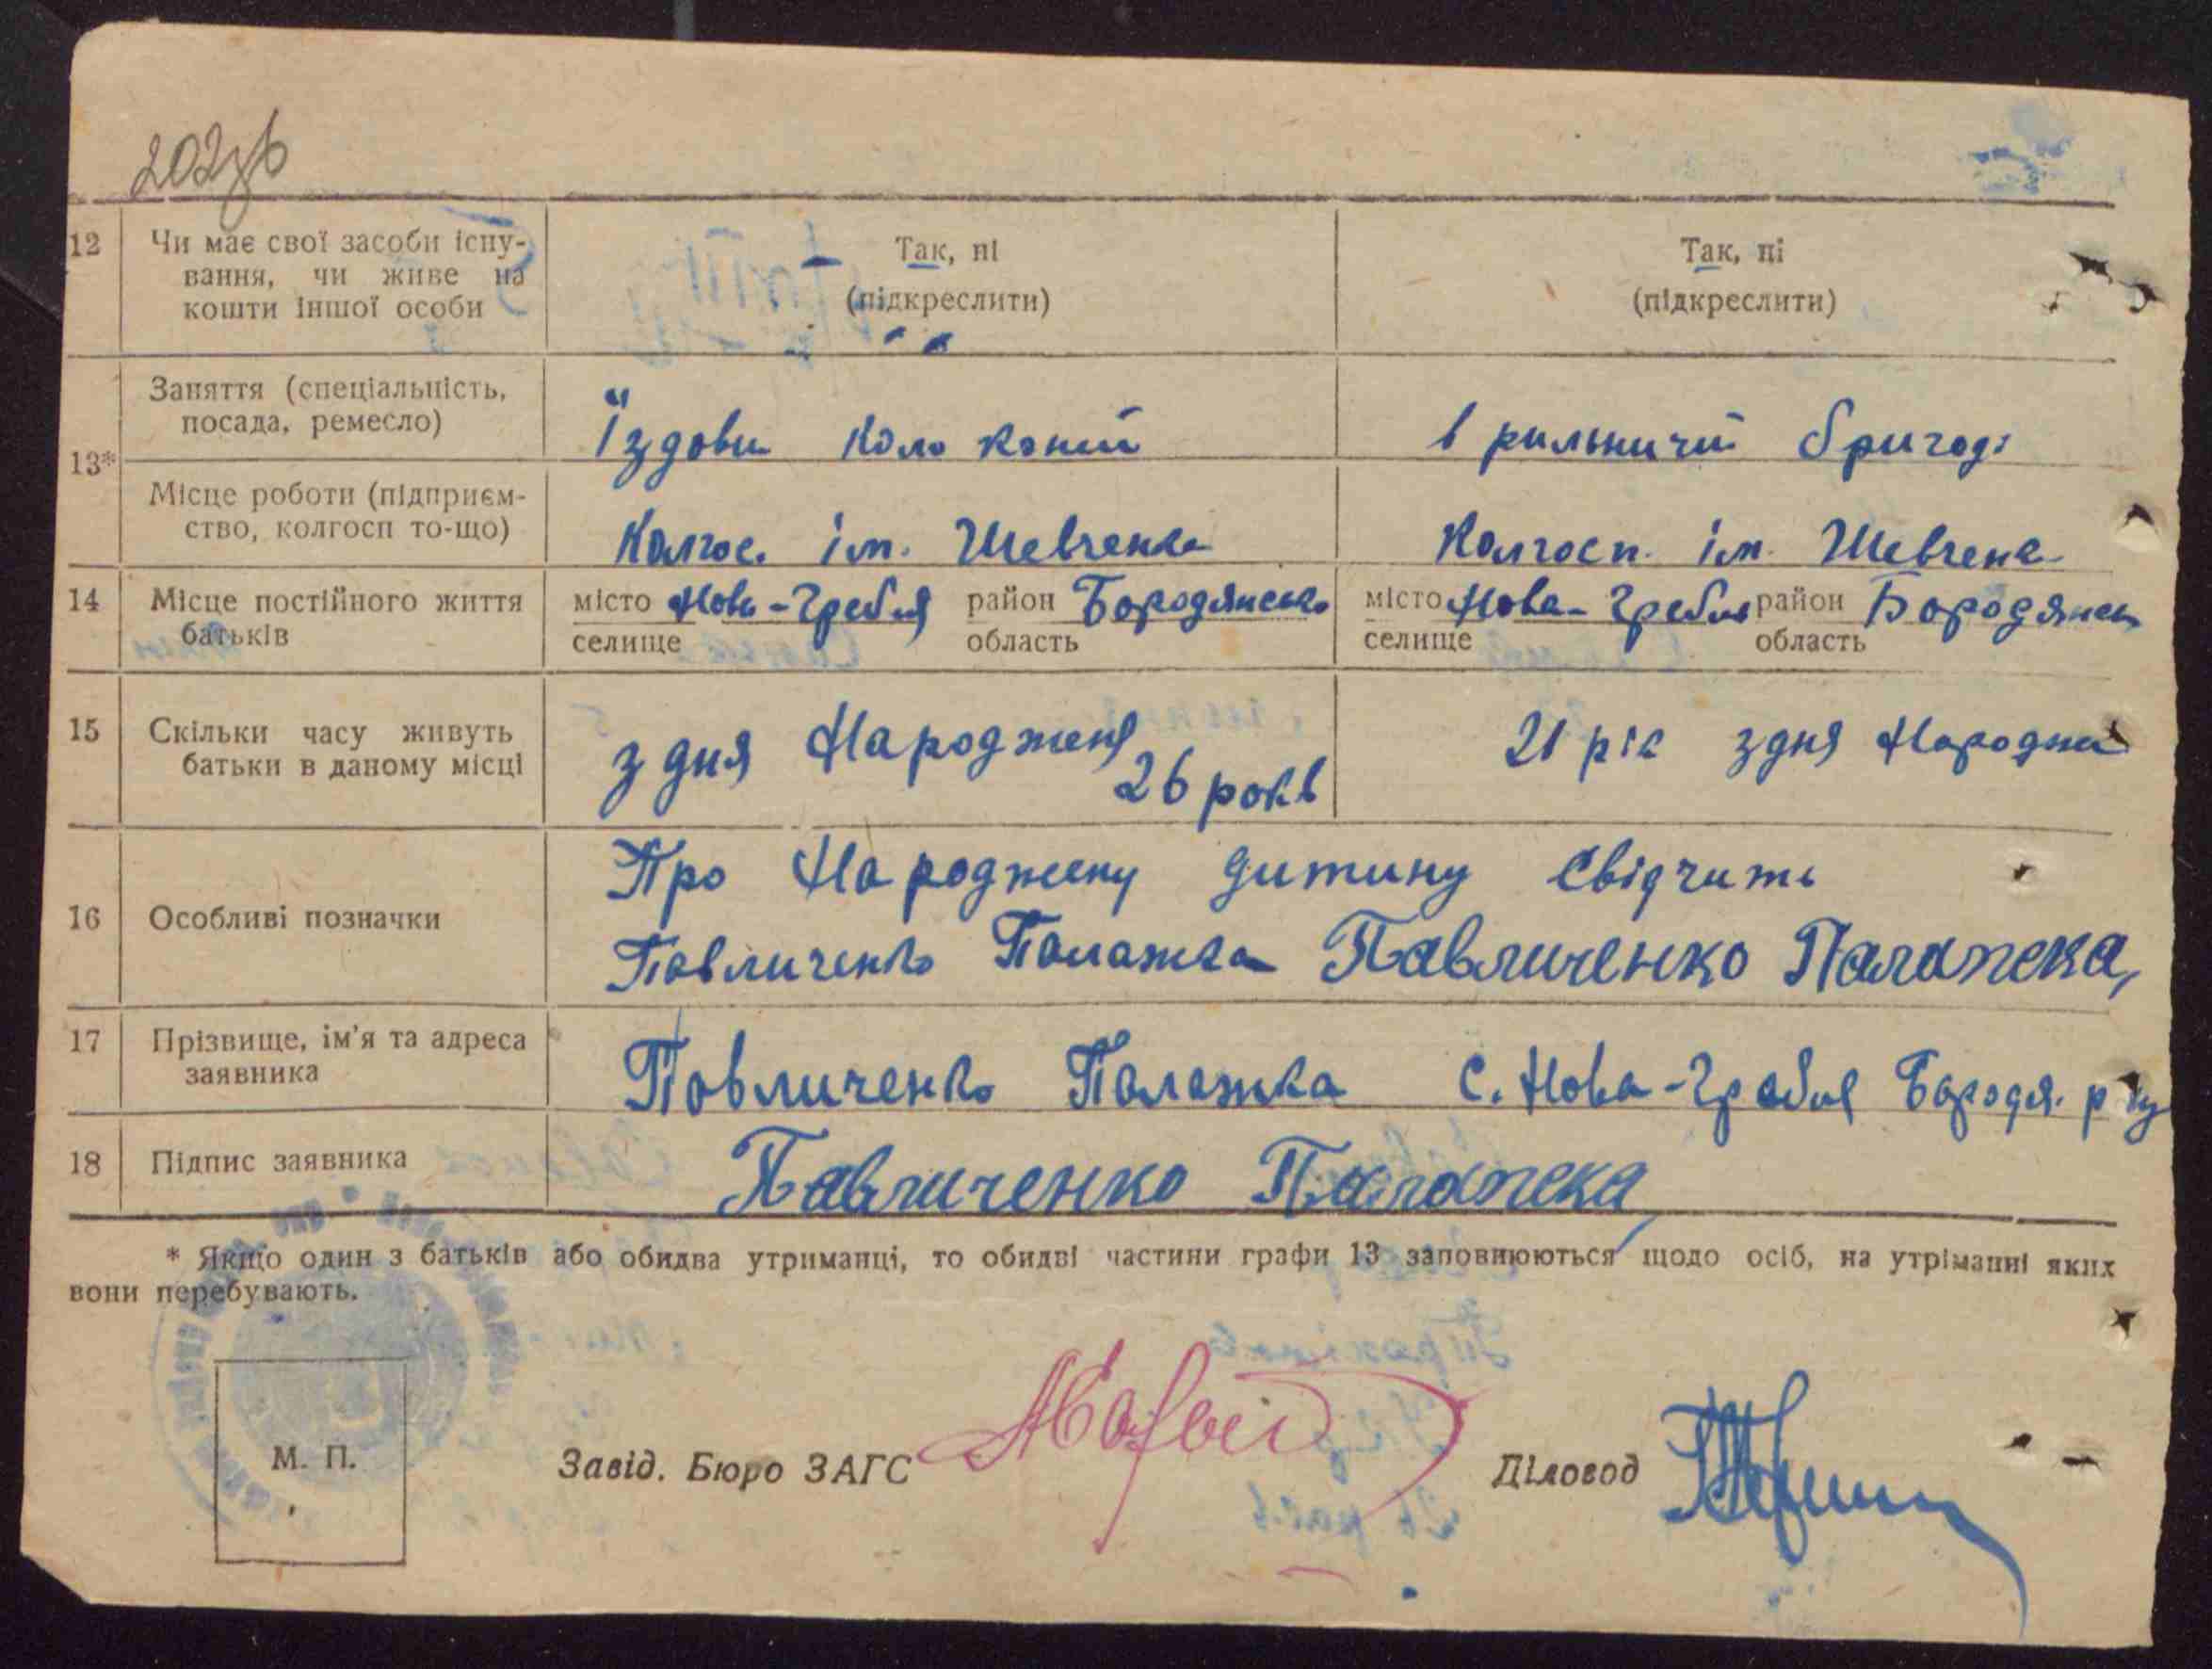 202зв
12 Чи має свої засоби існу-
вання, чи живе на
кошти іншої особи
Так, ні
(підкреслити)
Так, ні
(підкреслити)
13*
Заняття (спеціальність,
посада, ремесло)
Їздови коло коний
в рильничий бригоді
Місце роботи (підприєм-
ство, колгосп то-що)
Колгос. ім. Шевченка
Колгосп. ім. Шевченк
14 Місце постійного життя
батьків
місто Нова-Гребля район Бородянсько
селище область
місто Нова-Гребля район Бородянсь
селище область
15 Скільки часу живуть
батьки в даному місці
з дня Народженя
26 років
21 рік з дня Народжен
16 Особливі позначки
Про Народжену дитину Свідчить
Павличенко Палажка Павличенко Палажка,
17 Прізвище, ім'я та адреса
заявника
Павличенко Палажка с. Нова-Гребля Бородя. р ну
18 Підпис заявника
Павличенко Палажка
* Якщо один з батьків або обидва утриманці, то обидві частини графи 13 заповнюються щодо осіб, на утріманні яких
вони перебувають.
М. П.
Завід. Бюро ЗАГС
Діловод